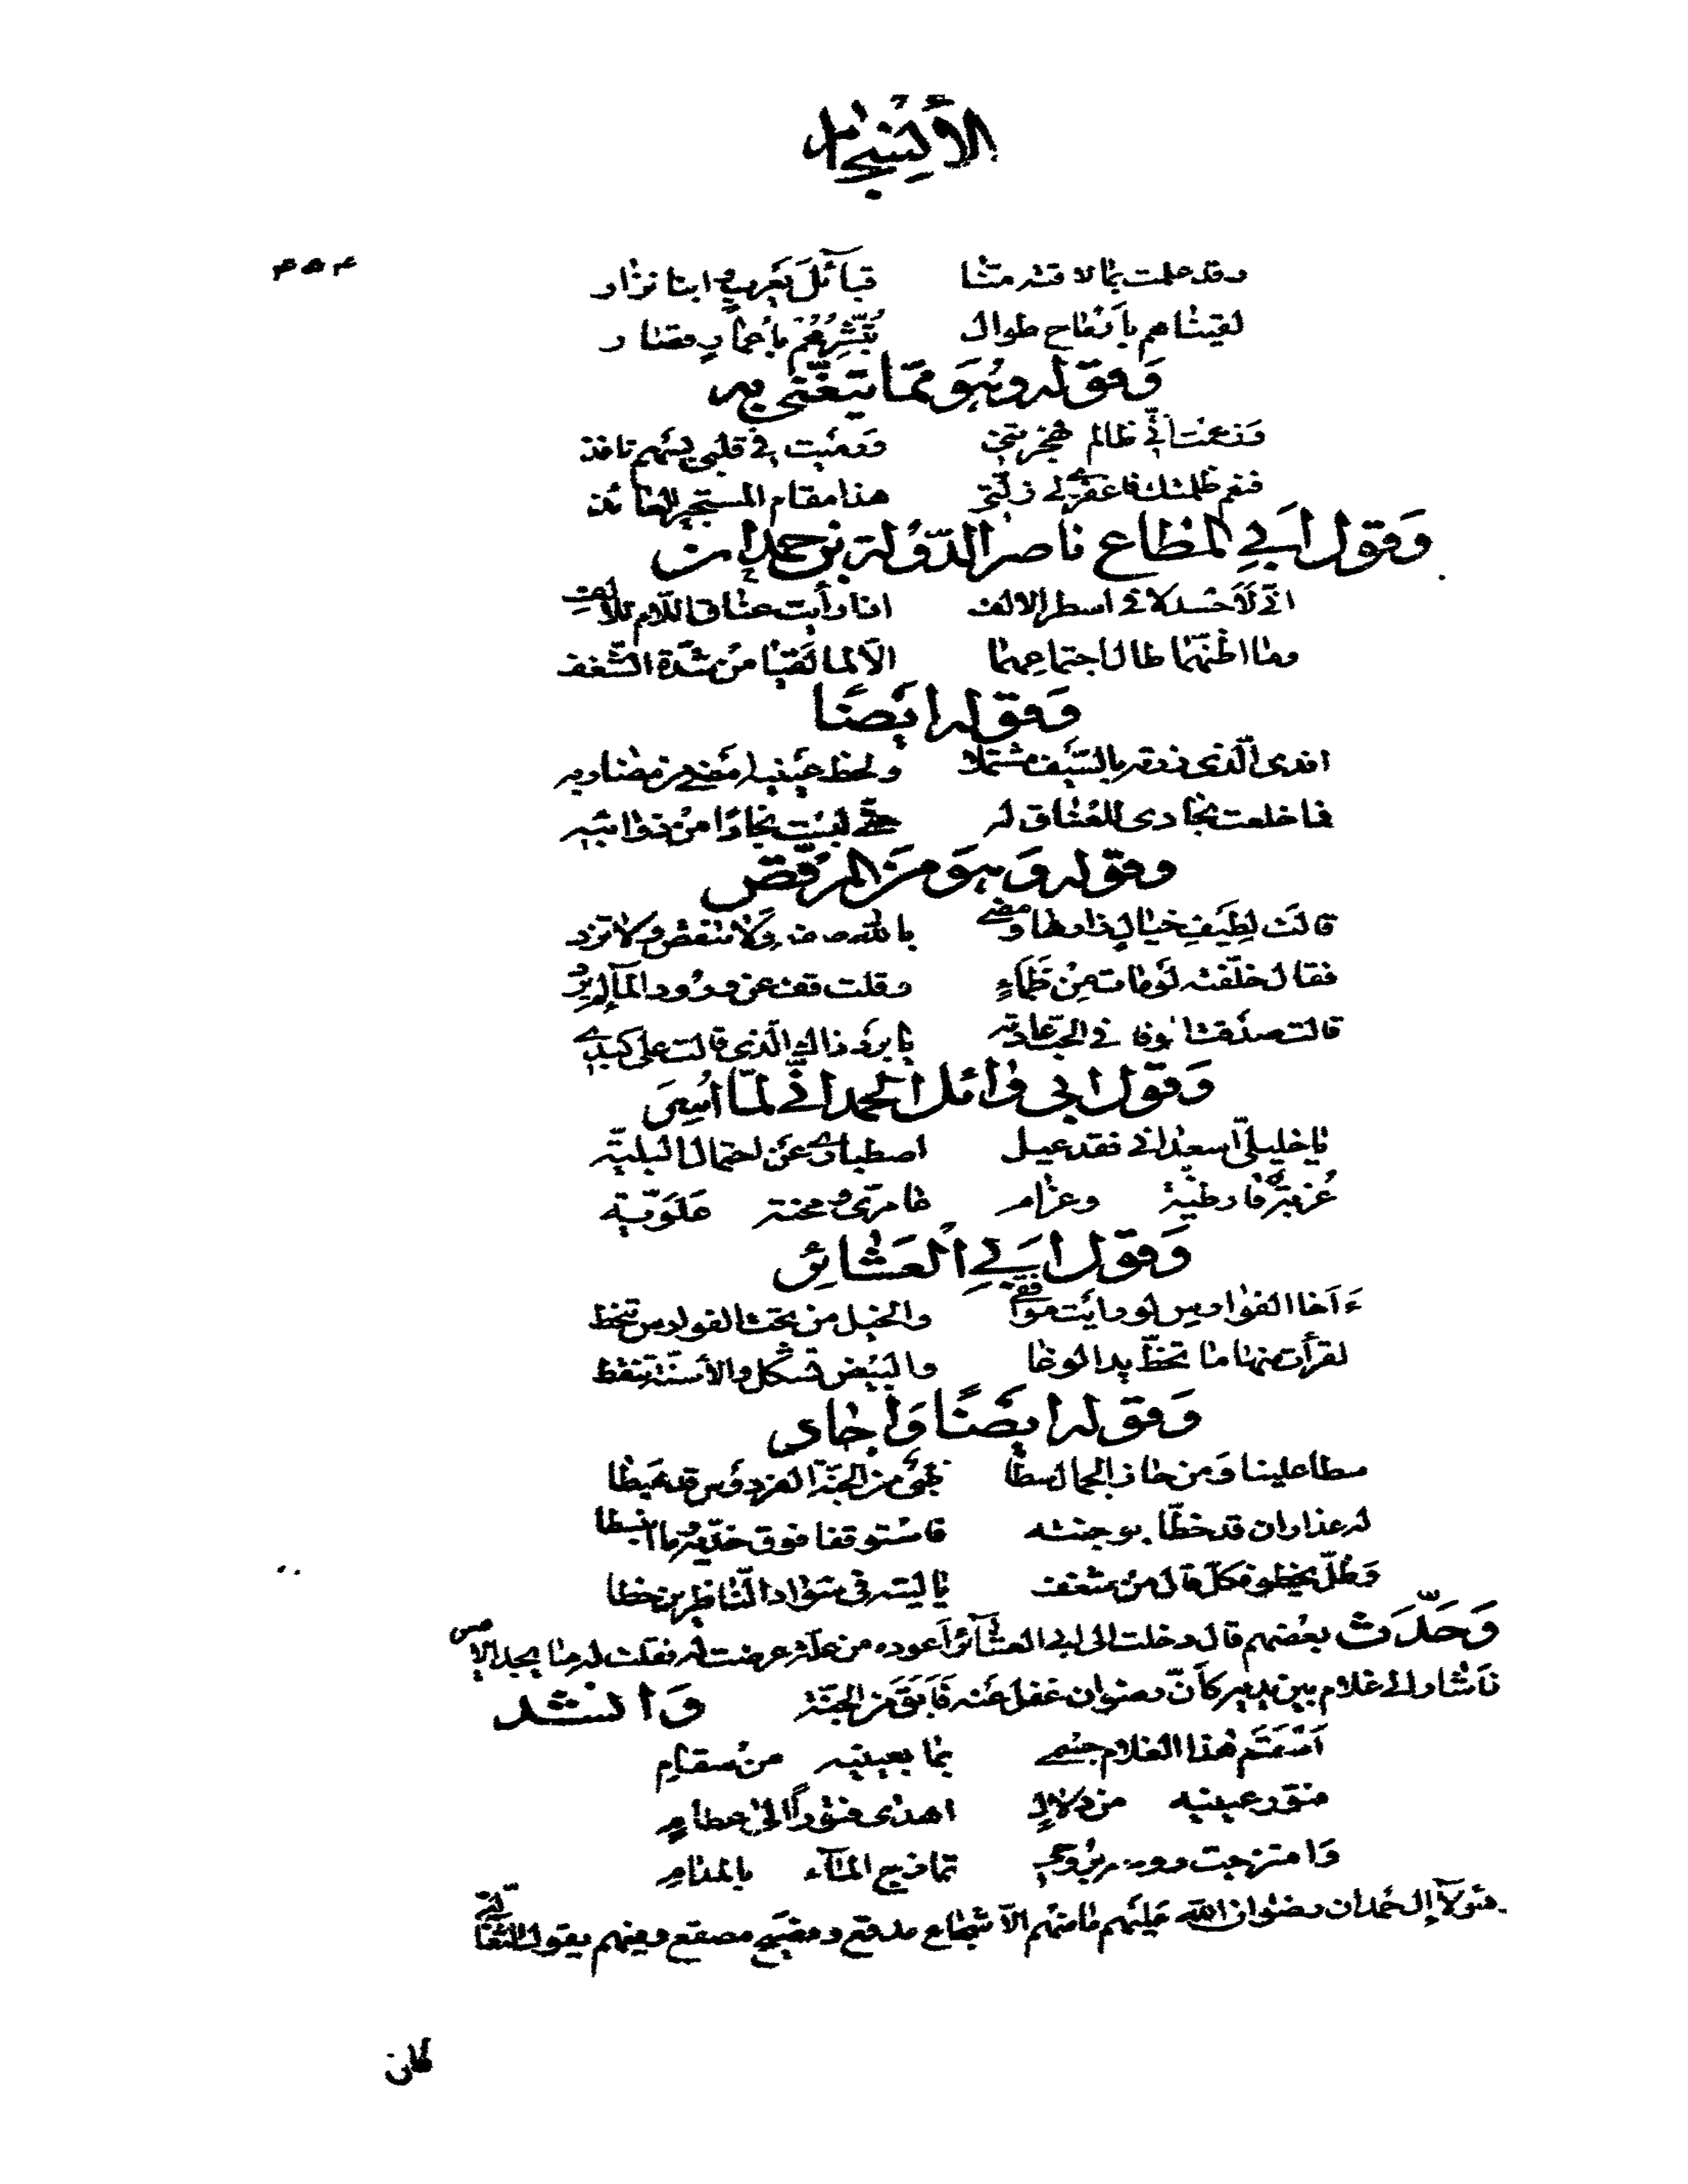 وقد علمت بما لاقته منا قبائل يعرب وابنا نزار
لقيناهم بأرماح طوال تبشرهم بأعمار قصار
وقوله وهو مما يتغنى به
وزعمت أني ظالم فهجرتني ورميت في قلبي بسهم نافذ
فنعم ظلمتك فاغفري لي زلتي هذا مقام المستجير العائذ
وقول أبي المطاع ناصر الدولة بن حمدان
اني لأحسد لا في اسطر الالف اذا رأيت عناق اللام للألف
وما اظنهما طال اجتماعهما الا لما لقيا من شدة الشغف
وقوله ايضًا
افدى الذى زرته بالسيف مشتملا ولحظ عينيه امضى من مضاربه
فما خلعت نجادى للعناق له حتى لبست نجادًا من ذوائبه
وقوله وهو من المرقص
قالت لطيف خيال زارها ومضى بالله صف ولا تنقص ولا تزد
فقال خلفته لو مات من ظماء وقلت قف عن ورود الماء لم يرد
قالت صدقت الوفا في الحب عادته يا برد ذاك الذى قالت على كبدي
وقول ابى وائل الحمداني لما اسر
يا خليلى اسعداني فقد عيل اصطباري عن احتمال البلية
غربة قارظية وغرام عامرى ومحنة علوية
وقول ابي العشائر
ءأخا الفوارس لو رأيت مواقفي والخيل من تحت الفوارس تنحط
لقرأت منها ما تخط يد الوغا والبيض تشكل والأسنة تنقط
وقوله ايضًا وأجاد
سطا علينا ومن حاز الجمال سطا ظبى من الجنة الفردوس قد هبطا
له عذاران قد خطا بوجنته فاستوقفا فوق خديه وما انبسطا
وظل يخطو فكل قال من شغف يا ليته في سواد الناظرين خطا
وحدث بعضهم قال دخلت الى ابي العشائر أعوده من علة عرضت له فقلت له ما يجد الامير
فأشار الى غلام بين يديه كأن رضوان غفل عنه فأبق من الجنة وانشد
أسقم هذا الغلام جسمي بما بعينيه من سقام
فتور عينيه من دلال اهدى فتورًا الى عظامي
وامتزجت روحه بروحي تمازج الماء بالمدام
هؤلاء آل حمدان رضوان الله عليهم ما منهم الا شجاع مدقع وفصيح مصقع وفيهم يقول الثعالبي
كان